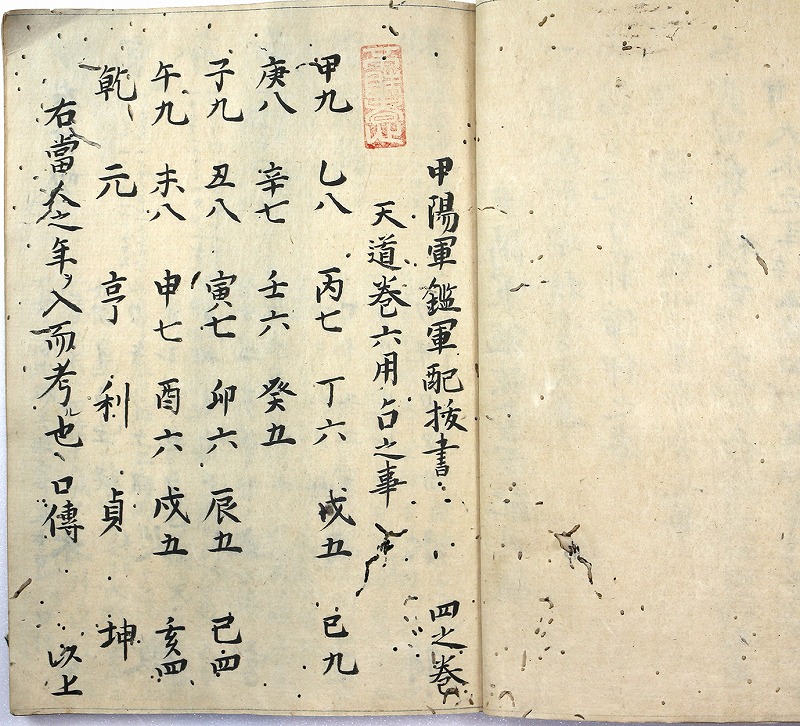 甲陽軍鑑軍配抜書 四之巻
天道巻六用占之事
甲九 乙八 丙七 丁六 戊五 已九
庚八 辛七 壬六 癸五
子九 丑八 寅七 卯六 辰五 巳四
午九 未八 申七 酉六 戌五 亥四
乾 元 亨 利 貞 坤
右當人之年ヲ入而考ル也 口傳 以上